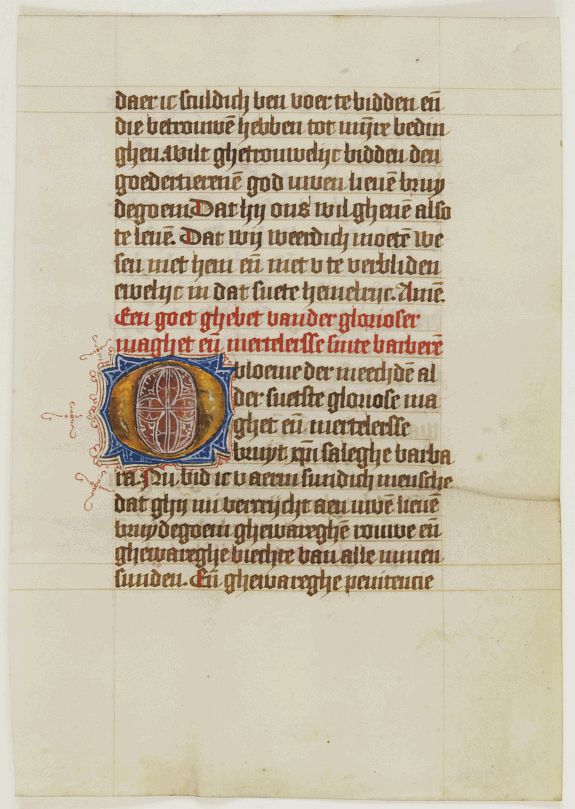 daer ic sculdich ben voer te bidden eñ
die betrouwē hebben tot mijre bedin
ghen. Wilt ghetrouwelijc bidden den
goedertierenē god uwen lieuē bruy
degoem. Dat hij ons wil gheuē also
te leuē. Dat wij weerdich moetē we
sen met hem eñ met v te verbliden
ewelijc in dat suete hemelrijc. Amē.
Een goet ghebet van der glorioser
maghet eñ mertelersse sinte barberē
O bloeme der meechdē al
der suetste gloriose ma
ghet eñ mertelersse
bruyt xpi saleghe barba
ra. Nu bid ic v aerm sundich mensche
dat ghij mi verwijcht aen uwē lieuē
bruydegoem ghewareghē rouwe eñ
ghewareghe biechte van alle minen
sunden. Eñ ghewareghe penitencie